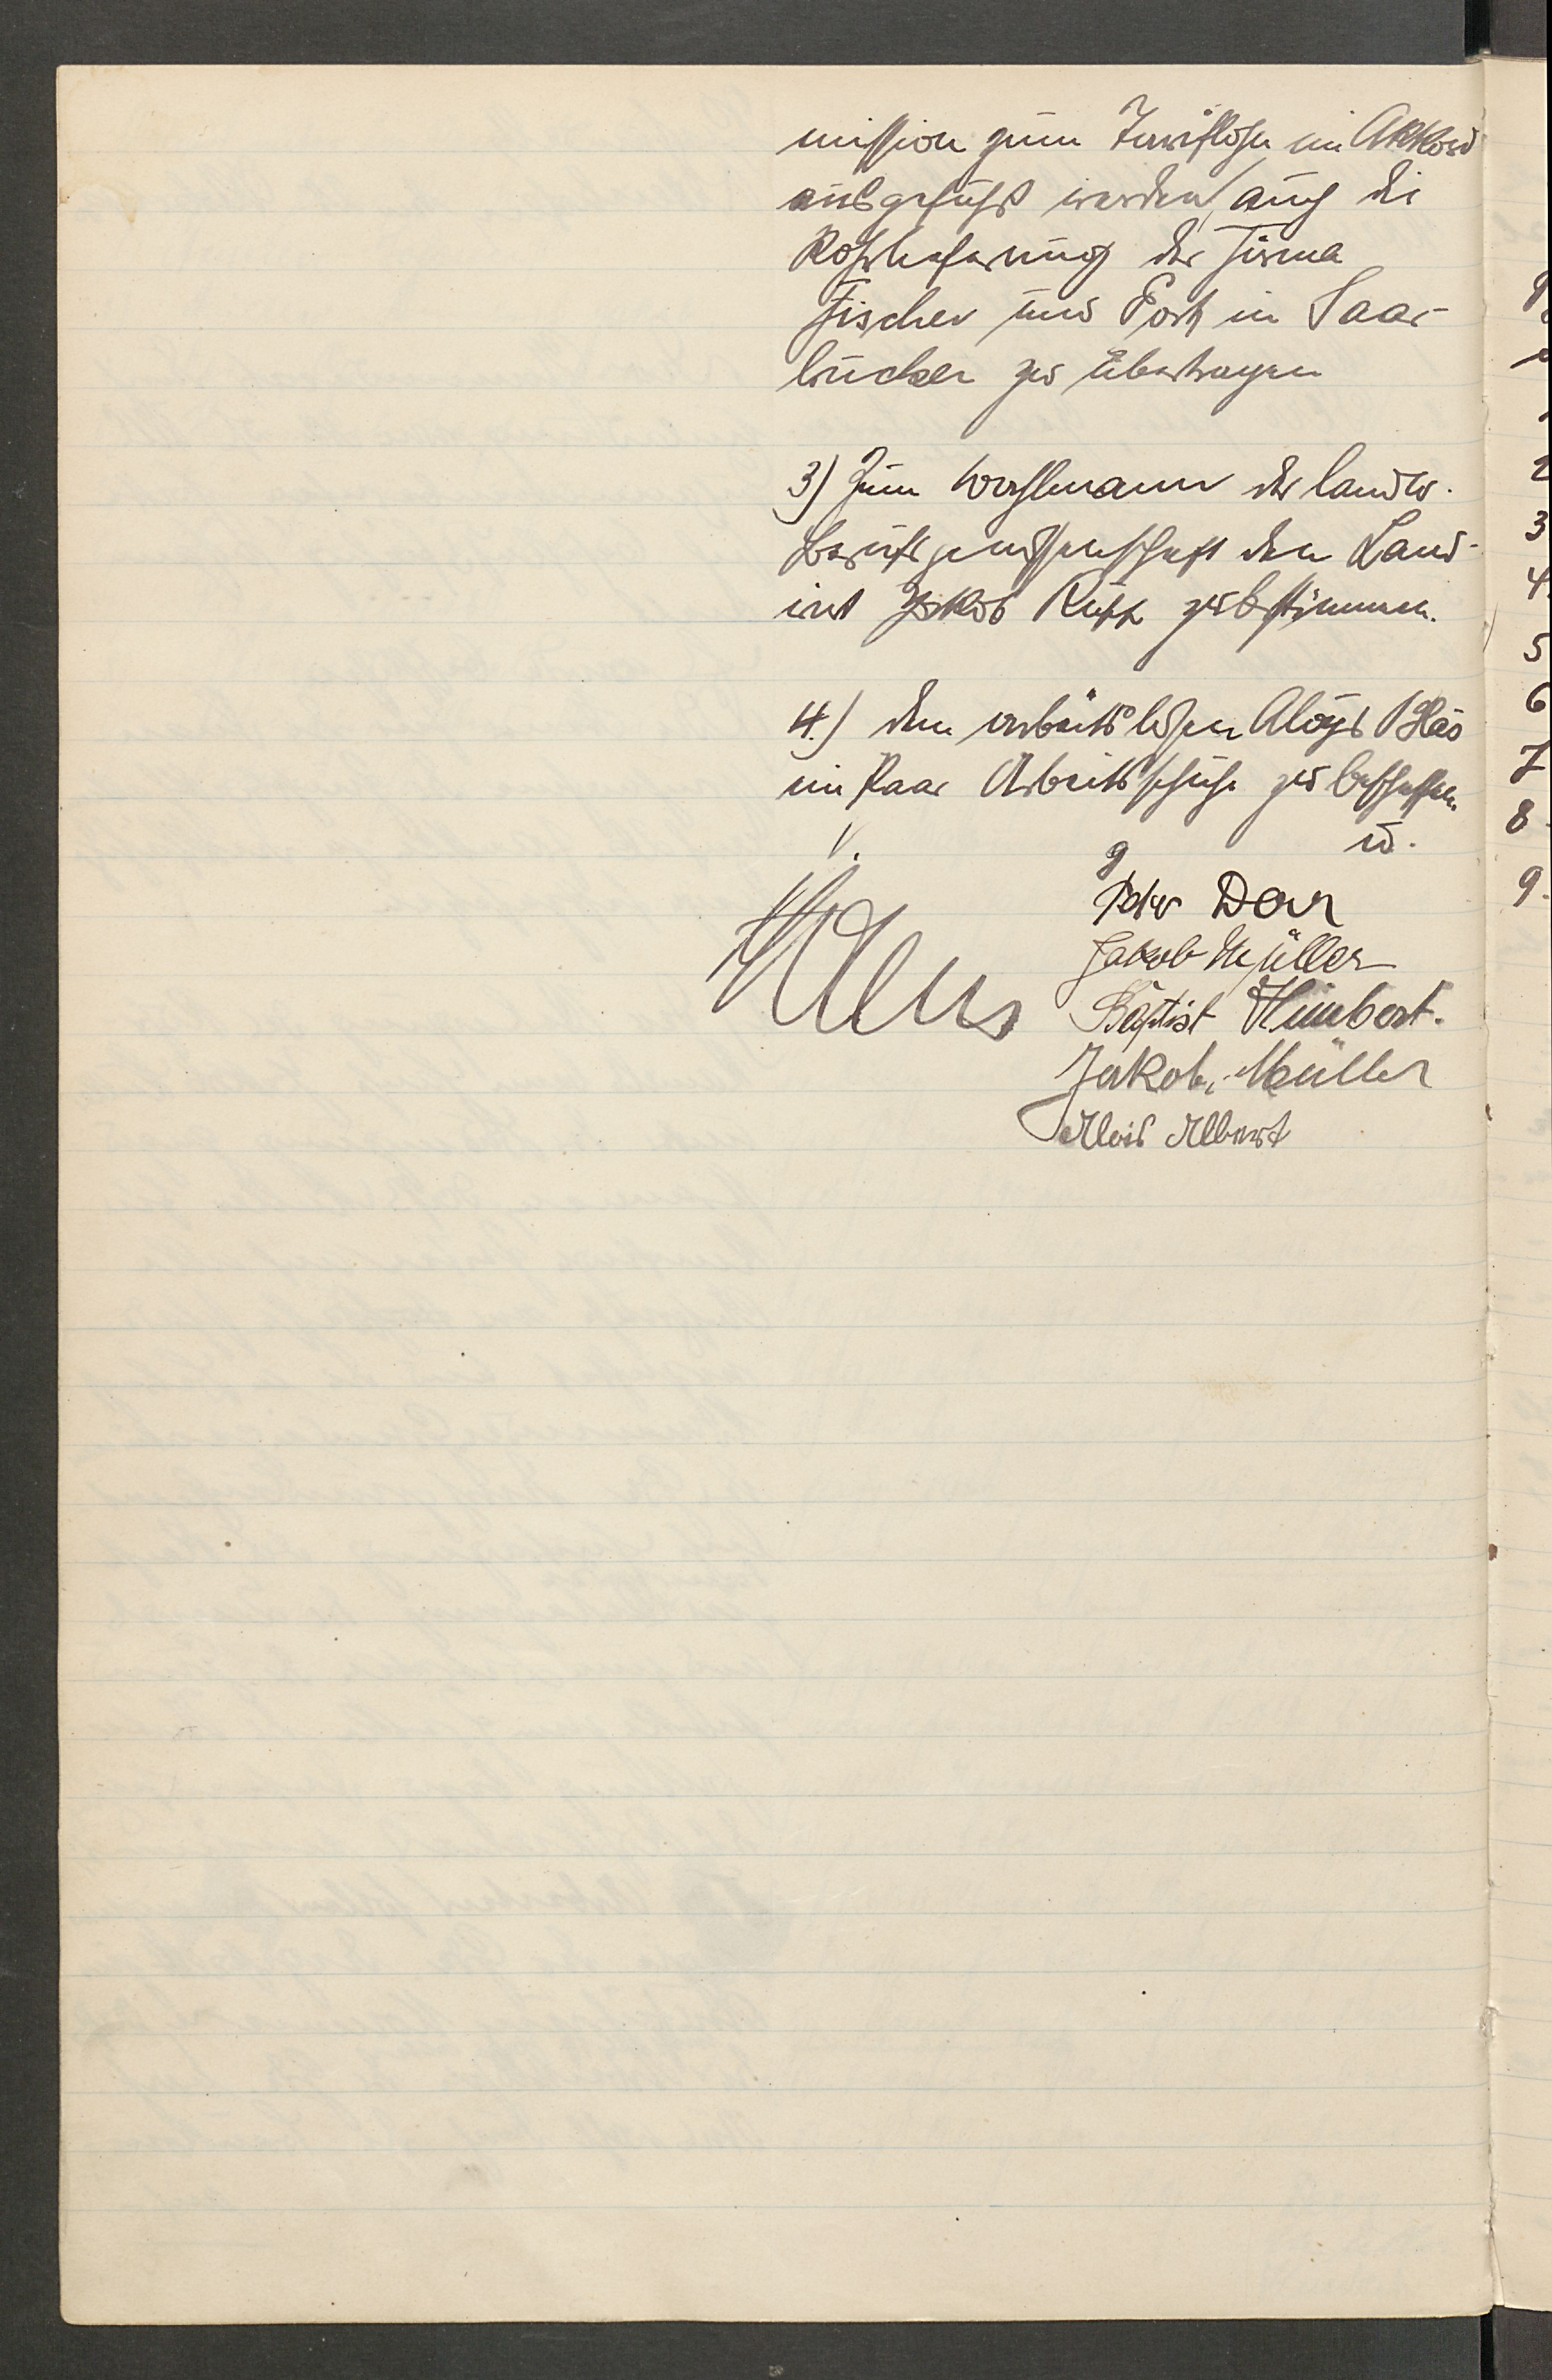 mission zum Tariflohn im Akkord
ausgeführt werden, auch die
Rohrlieferung der Firma
Fischer und Post in Saar-
brücken zu übertragen
3) Zum Wahlmann der landw.
Berufsgenossenschaft den Land-
wirt Jakob zu bestimmen.
4.) dem arbeitslosen Aloys Bläs
ein Paar Arbeitsschuhe zu beschaffen.
V. g. u.
Peter Dorr
Jakob Müller
Baptist Himbert.
Jakob Müller
Alois Albert
2
3
4.
5
6
7
8.
9.